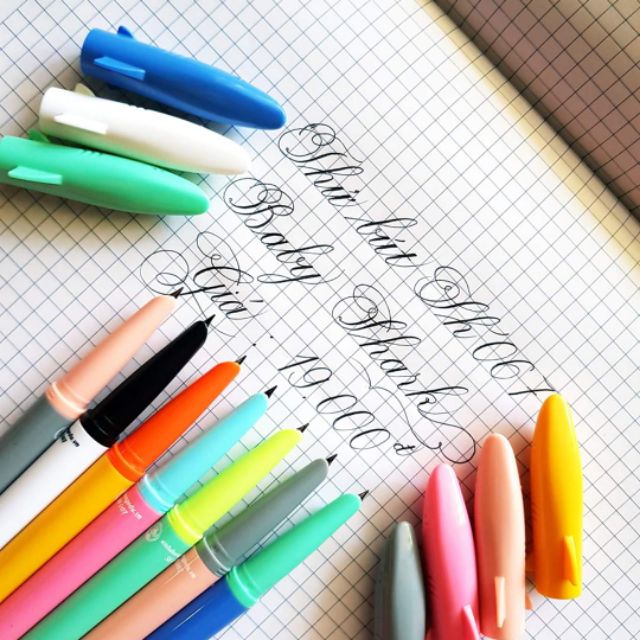 Thử bút Sh 067
Baby Shark
Giá : 19.000 đ